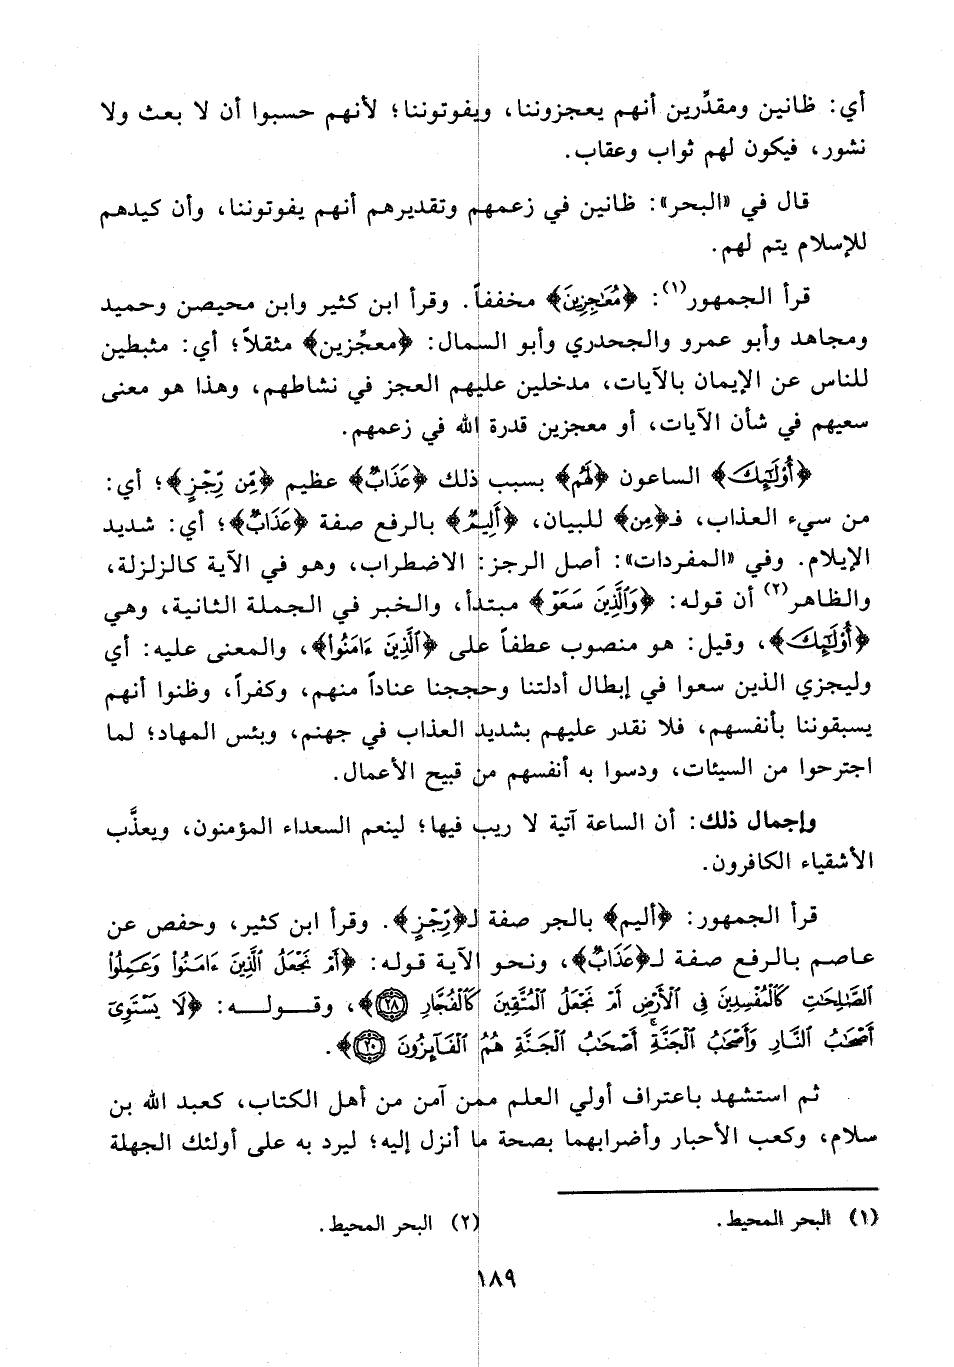 أي: ظانين ومقدِّرين أنهم يعجزوننا، ويفوتوننا؛ لأنهم حسبوا أن لا بعث ولا
نشور، فيكون لهم ثواب وعقاب.
قال في «البحر»: ظانين في زعمهم وتقديرهم أنهم يفوتوننا، وأن كيدهم
للإسلام يتم لهم.
قرأ الجمهور(١): ﴿مُعَـٰجِزِينَ﴾ مخففاً. وقرأ ابن كثير وابن محيصن وحميد
ومجاهد وأبو عمرو والجحدري وأبو السمال: ﴿معجِّزين﴾ مثقلاً؛ أي: مثبطين
للناس عن الإيمان بالآيات، مدخلين عليهم العجز في نشاطهم، وهذا هو معنى
سعيهم في شأن الآيات، أو معجزين قدرة الله في زعمهم.
﴿أُوْلَـٰٓئِكَ﴾ الساعون ﴿لَهُم﴾ بسبب ذلك ﴿عَذَابٌ﴾ عظيم ﴿مِّن رِّجْزٍ﴾؛ أي:
من سيء العذاب، فـ﴿مِن﴾ للبيان، ﴿أَلِيمٌ﴾ بالرفع صفة ﴿عَذَابٌ﴾؛ أي: شديد
الإيلام. وفي «المفردات»: أصل الرجز: الاضطراب، وهو في الآية كالزلزلة،
والظاهر(٢) أن قوله: ﴿وَٱلَّذِينَ سَعَوْ﴾ مبتدأ، والخبر في الجملة الثانية، وهي
﴿أُوْلَـٰٓئِكَ﴾، وقيل: هو منصوب عطفاً على ﴿ٱلَّذِينَ ءَامَنُواْ﴾، والمعنى عليه: أي
وليجزي الذين سعوا في إبطال أدلتنا وحججنا عناداً منهم، وكفراً، وظنوا أنهم
يسبقوننا بأنفسهم، فلا نقدر عليهم بشديد العذاب في جهنم، وبئس المهاد؛ لما
اجترحوا من السيئات، ودسوا به أنفسهم من قبيح الأعمال.
وإجمال ذلك: أن الساعة آتية لا ريب فيها؛ لينعم السعداء المؤمنون، ويعذَّب
الأشقياء الكافرون.
قرأ الجمهور: ﴿أليم﴾ بالجر صفة لـ﴿رِّجْزٍ﴾. وقرأ ابن كثير، وحفص عن
عاصم بالرفع صفة لـ﴿عَذَابٌ﴾، ونحو الآية قوله: ﴿أَمْ نَجْعَلُ ٱلَّذِينَ ءَامَنُواْ وَعَمِلُواْ
ٱلصَّـٰلِحَـٰتِ كَٱلْمُفْسِدِينَ فِى ٱلْأَرْضِ أَمْ نَجْعَلُ ٱلْمُتَّقِينَ كَٱلْفُجَّارِ ﴿٢٨﴾﴾، وقـــولـــه: ﴿لَا يَسْتَوِىٓ
أَصْحَـٰبُ ٱلنَّارِ وَأَصْحَـٰبُ ٱلْجَنَّةِۚ أَصْحَـٰبُ ٱلْجَنَّةِ هُمُ ٱلْفَآئِزُونَ ﴿٢٠﴾﴾.
ثم استشهد باعتراف أولي العلم ممن آمن من أهل الكتاب، كعبد الله بن
سلام، وكعب الأحبار وأضرابهما بصحة ما أنزل إليه؛ ليرد به على أولئك الجهلة
(١) البحر المحيط.
(٢) البحر المحيط.
١٨٩